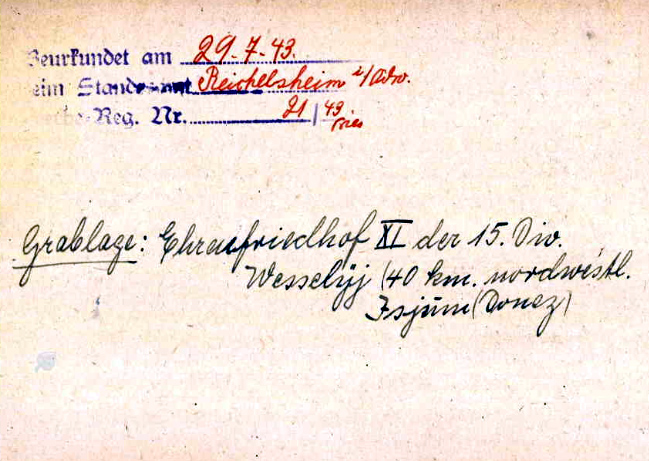 Beurkundet am 29.7.43.
beim Standesamt Reichelsheim i/Odw.
Sterbe-Reg. Nr. 21/43
Grablage: Ehrenfriedhof XI der 15. Div.
Wesselyj (40 km. nordwestl.
Isjum (Donez)